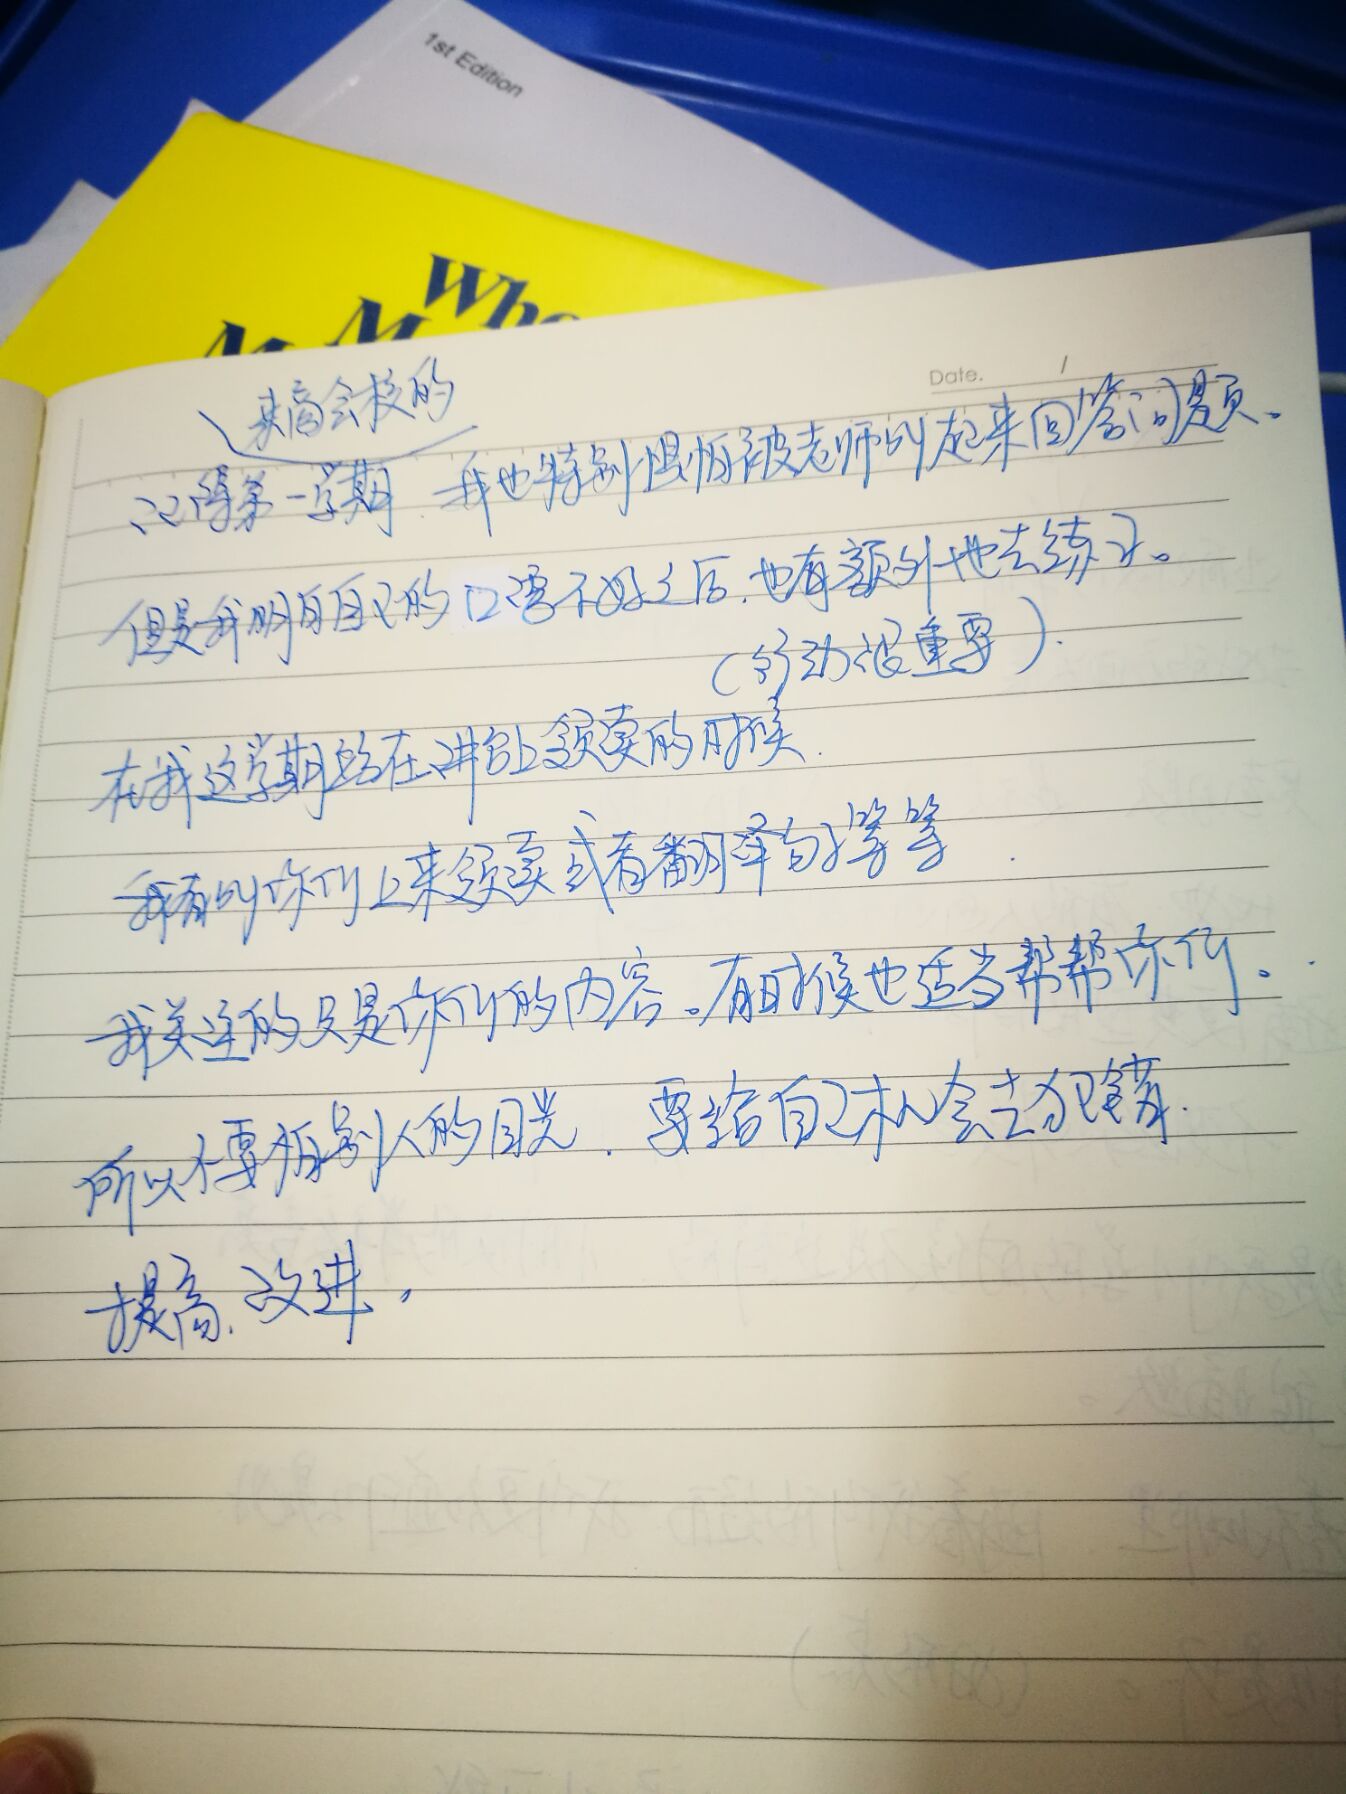 1st Edition
Who
来商会校的
Date. /
记得第一学期,我也特别惧怕被老师叫起来回答问题。
但是我明白自己的口语不好之后,也有额外地去练习。
(行动很重要).
在我这学期站在讲台上领读的时候,
我有叫你们上来领读或者翻译句子等等.
我关注的只是你们的内容。有时候也适当帮帮你们。
所以不要怕别人的目光,要给自己机会去犯错.
提高、改进。